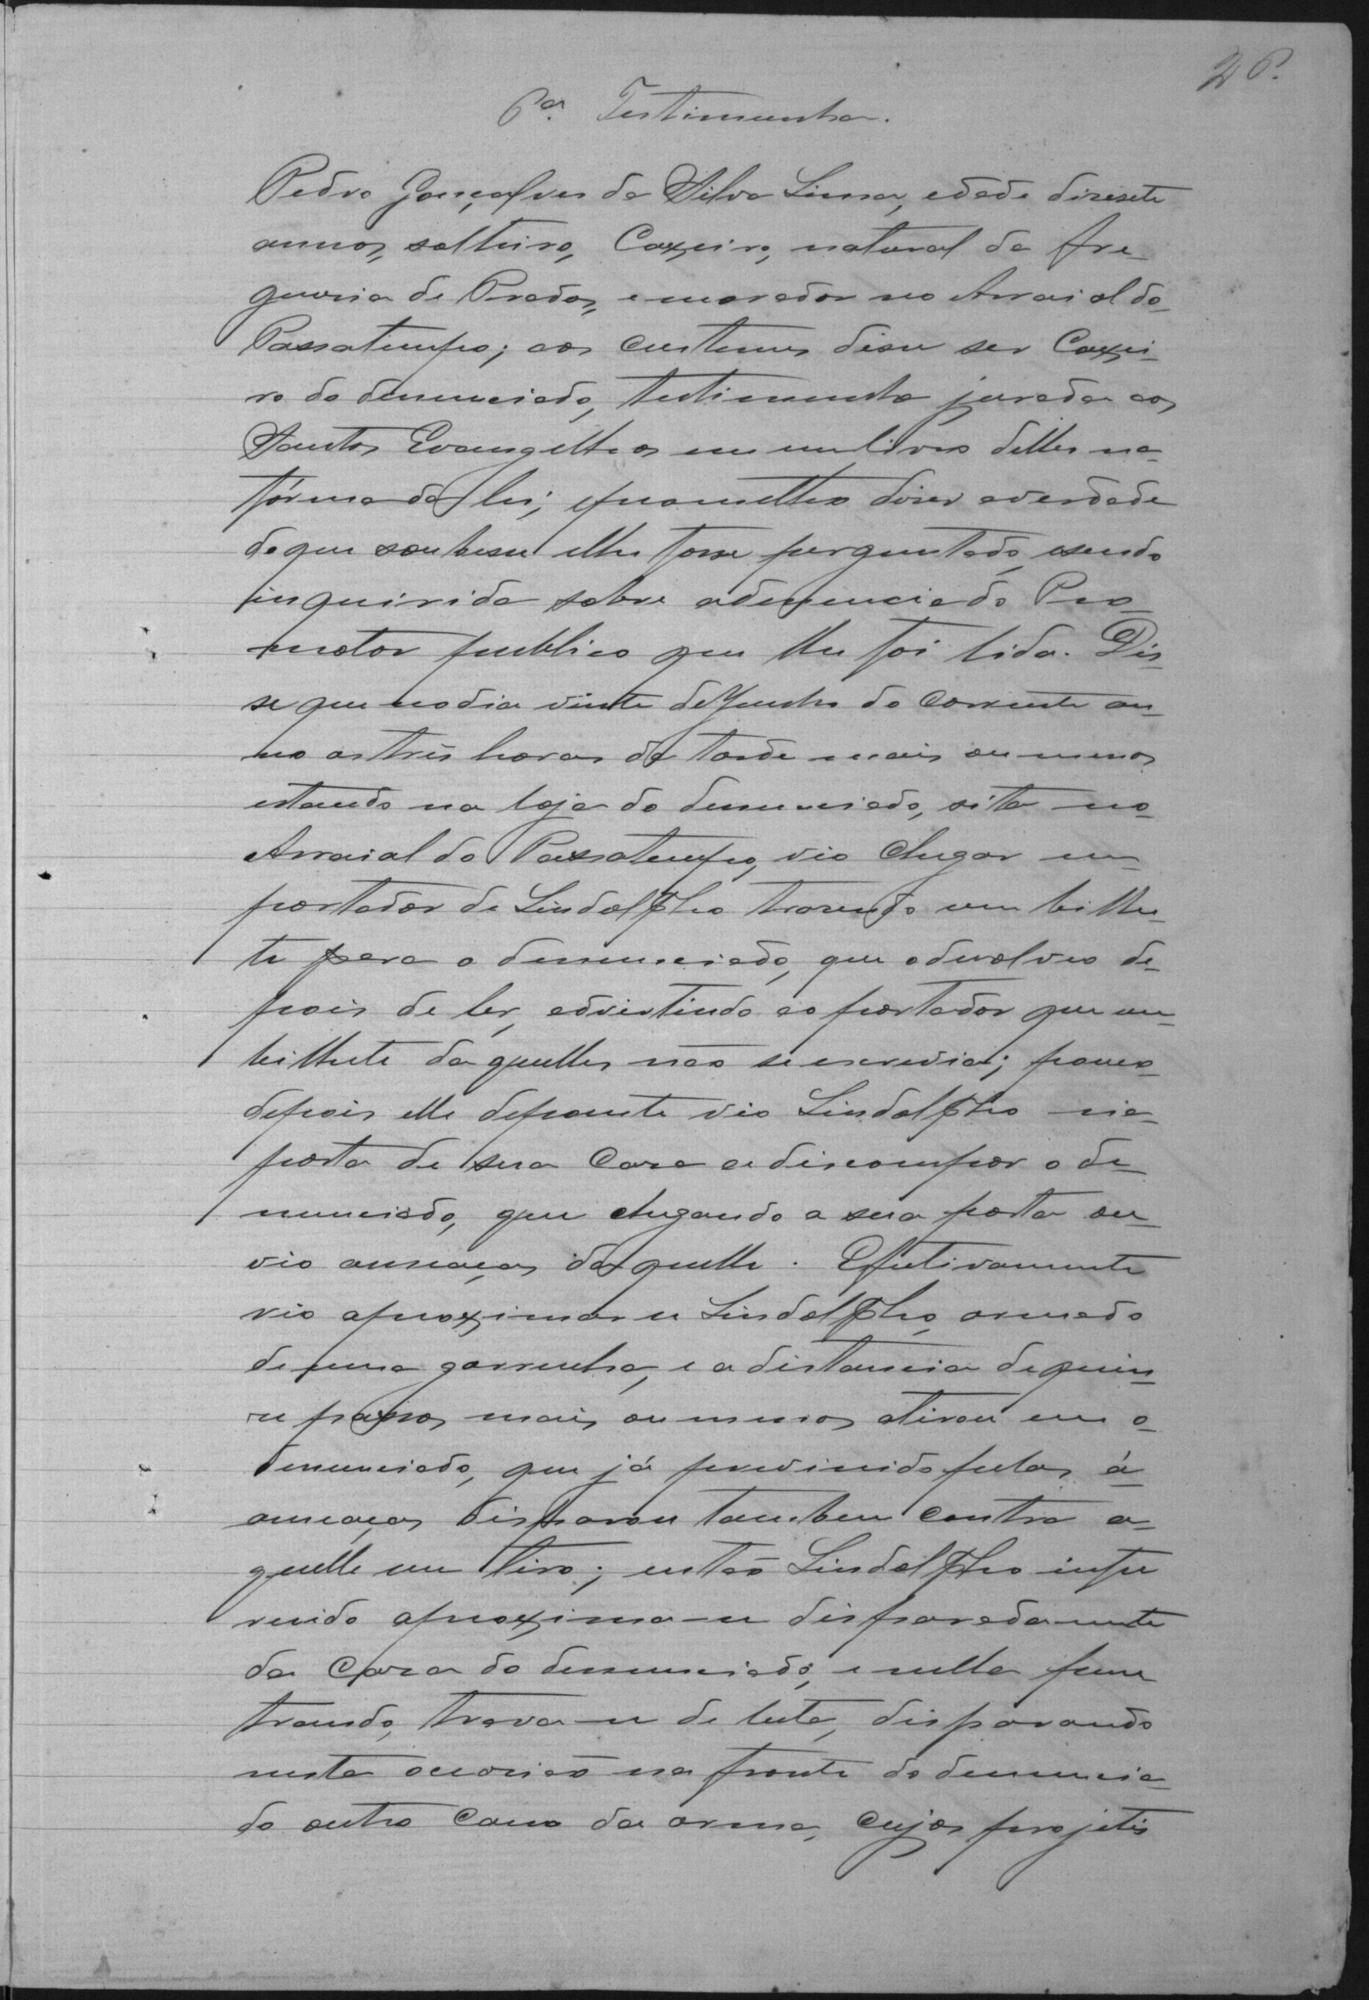 26.
6ª Testimunha.
Pedro Gonçalves da Silva Lima, edade diresete
annos, solteiro, Caxeiro, natural da fre-
guesia de Prados, e morador no Arraial do
Passatempo; aos custumes disse ser Caxei-
ro do denunciado, testimunha jurada aos
Santos Evangelhos em um livro delles na
fórma da lei; e prometteo diser a verdade
do que soubesse e lhe fosse perguntado, e sendo
inquirida sobre a denuncia do Pro-
motor publico que lhe foi lida. Dis-
se que no dia vinte de Junho do corrente an-
no as três horas da tarde mais ou menos
estando na loja do denunciado, sita no
Arraial do Passatempo, vio chegar um
portador de Lindolpho trasendo um bilhe-
te para o denunciado, que o devolveo de-
pois de ler, advertindo ao portador que um
bilhete daquelles não se escrevia; pouco
depois elle depoente vio Lindolpho na
porta de sua Casa a discompor o de-
nunciado, que chegando a sua porta ou-
vio ameaças daquelle. Efetivamente
vio aproximar se Lindolpho, armado
de uma garrucha, e a distancia de quin-
se passos mais ou menos atirou em o
denunciado, que já previnido pelas á
ameaças disparou tambem contra a-
quelle um tiro; então Lindolpho infu
recido aproxima-se disparadamente
da Casa do denunciado, e nella pene
trando, trava-se de luta, disparando
nesta occasião na fronte do denuncia-
do outro cano da arma, cujos projetis